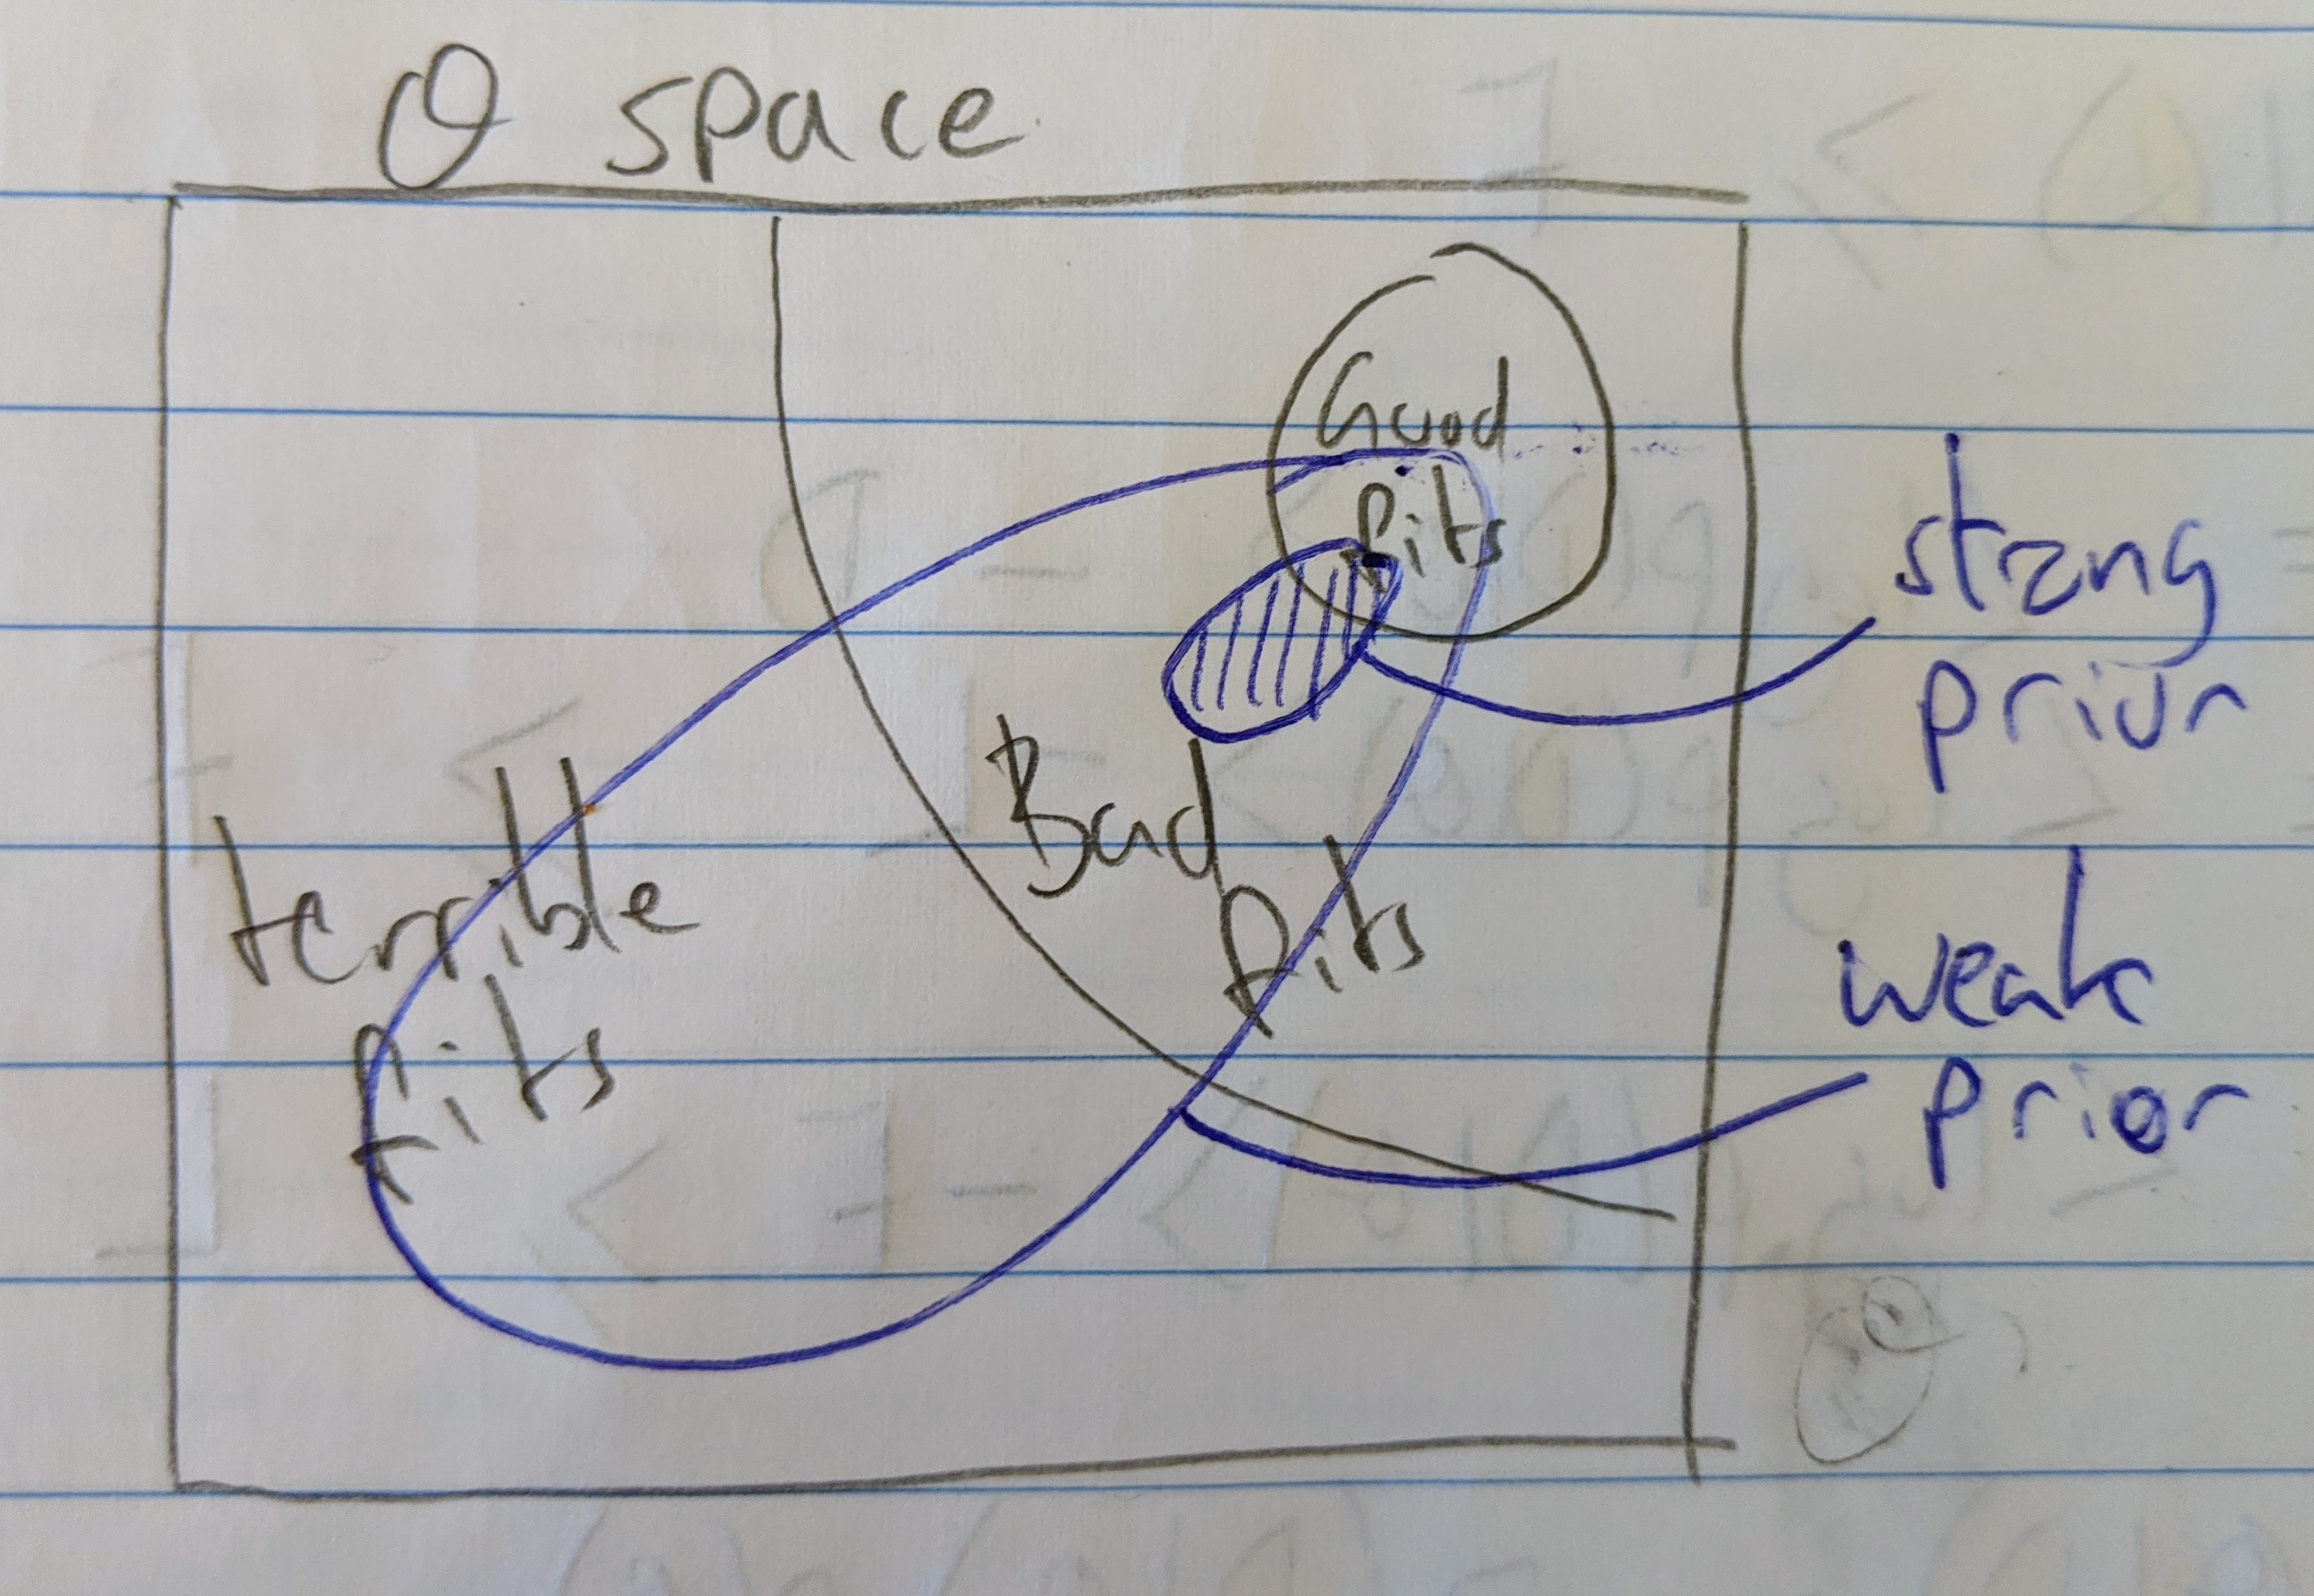 θ space
Good
fits
strong
prior
Bad
fits
terrible
fits
weak
prior